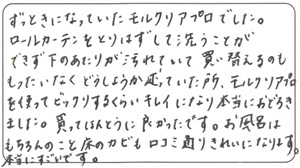 ずっときになっていたモルクリアプロでした。
ロールカーテンをとりはずして洗うことが
できず下のあたりが汚れていて買い替えるのも
もったいなくどうしようか迷っていた所、モルクリアプロ
を使ってビックリするくらいキレイになり本当におどろき
ました。買ってほんとうに良かったです。お風呂は
もちろんのこと床のカビも口コミ通りきれいになります。
本当にすごいです。